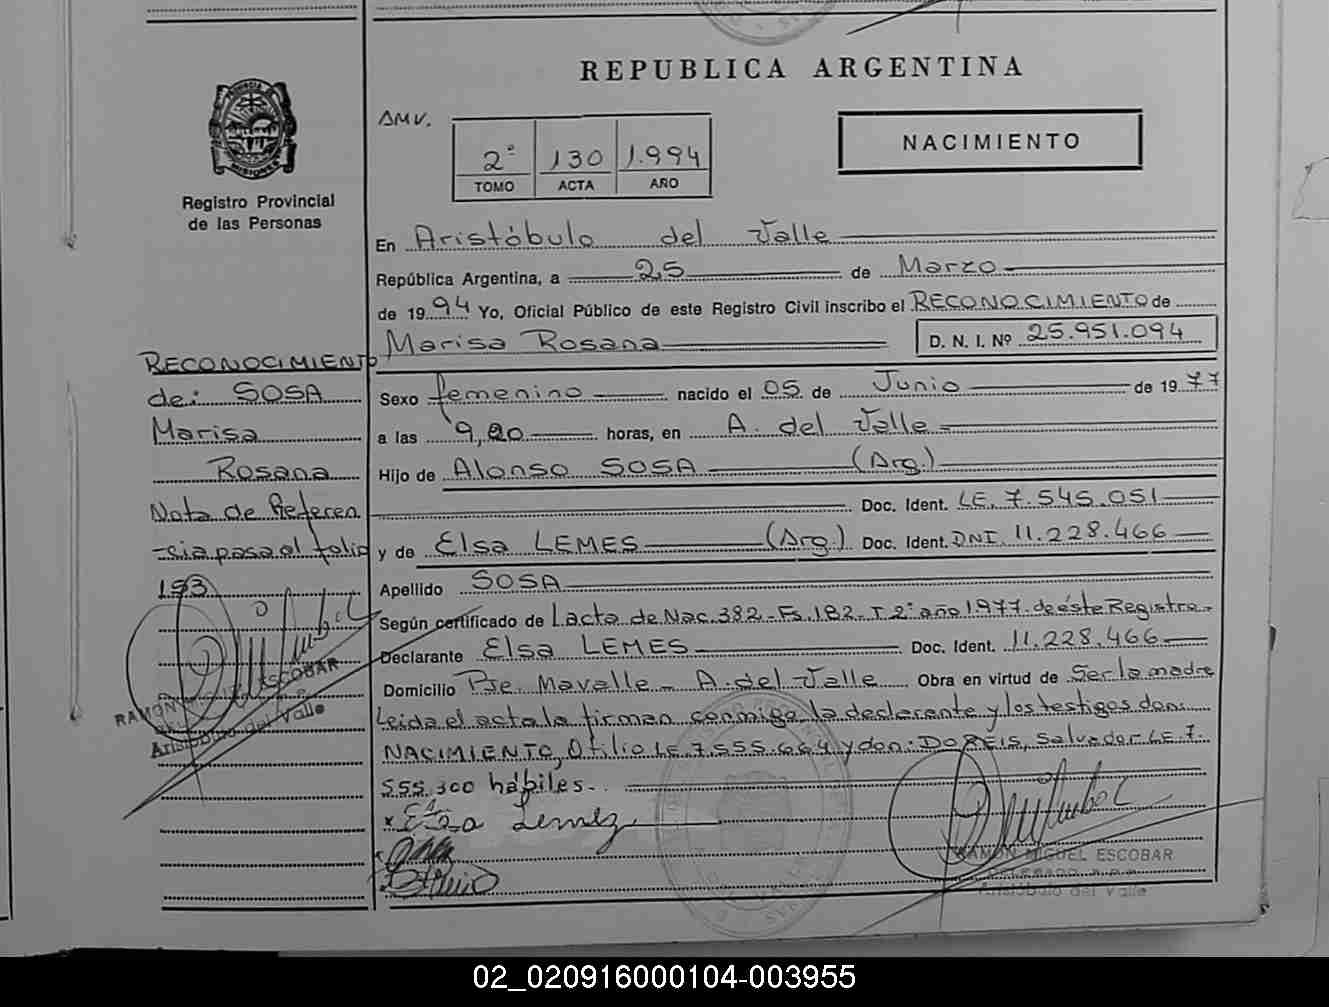 REPUBLICA ARGENTINA
AMV.
2º 130 1.994
TOMO ACTA AÑO
NACIMIENTO
Registro Provincial
de las Personas
En Aristóbulo del Valle
República Argentina, a 25 de Marzo
de 1994 Yo, Oficial Público de este Registro Civil inscribo el RECONOCIMIENTO de
Marisa Rosana D. N. I. Nº 25.951.094
RECONOCIMIENTO
de: SOSA
Marisa
Rosana
Nota de Referen
-cia pasa al folio
193
Sexo femenino nacido el 05 de Junio de 1977
a las 9,20 horas, en A. del Valle
Hijo de Alonso SOSA (Arg.)
Doc. Ident. LE. 7.545.051
y de Elsa LEMES (Arg.) Doc. Ident. DNI. 11.228.466
Apellido SOSA
Según certificado de L'acta de Nac. 382-Fs. 182-T 2º año 1977. de éste Registro-
Declarante Elsa LEMES Doc. Ident. 11.228.466
Domicilio Pje Mavalle - A. del Valle Obra en virtud de Ser la madre
Leida el acta la firman conmigo la declarante y los testigos don:
NACIMIENTO, Otilio LE. 7.555.664 y don: DO REIS, Salvador LE. 7.
555.300 hábiles..
Elsa Lemez
RAMON MIGUEL ESCOBAR
DELEGADO
Aristóbulo del Valle
RAMON ESCOBAR
Aristóbulo del Valle
02_020916000104-003955